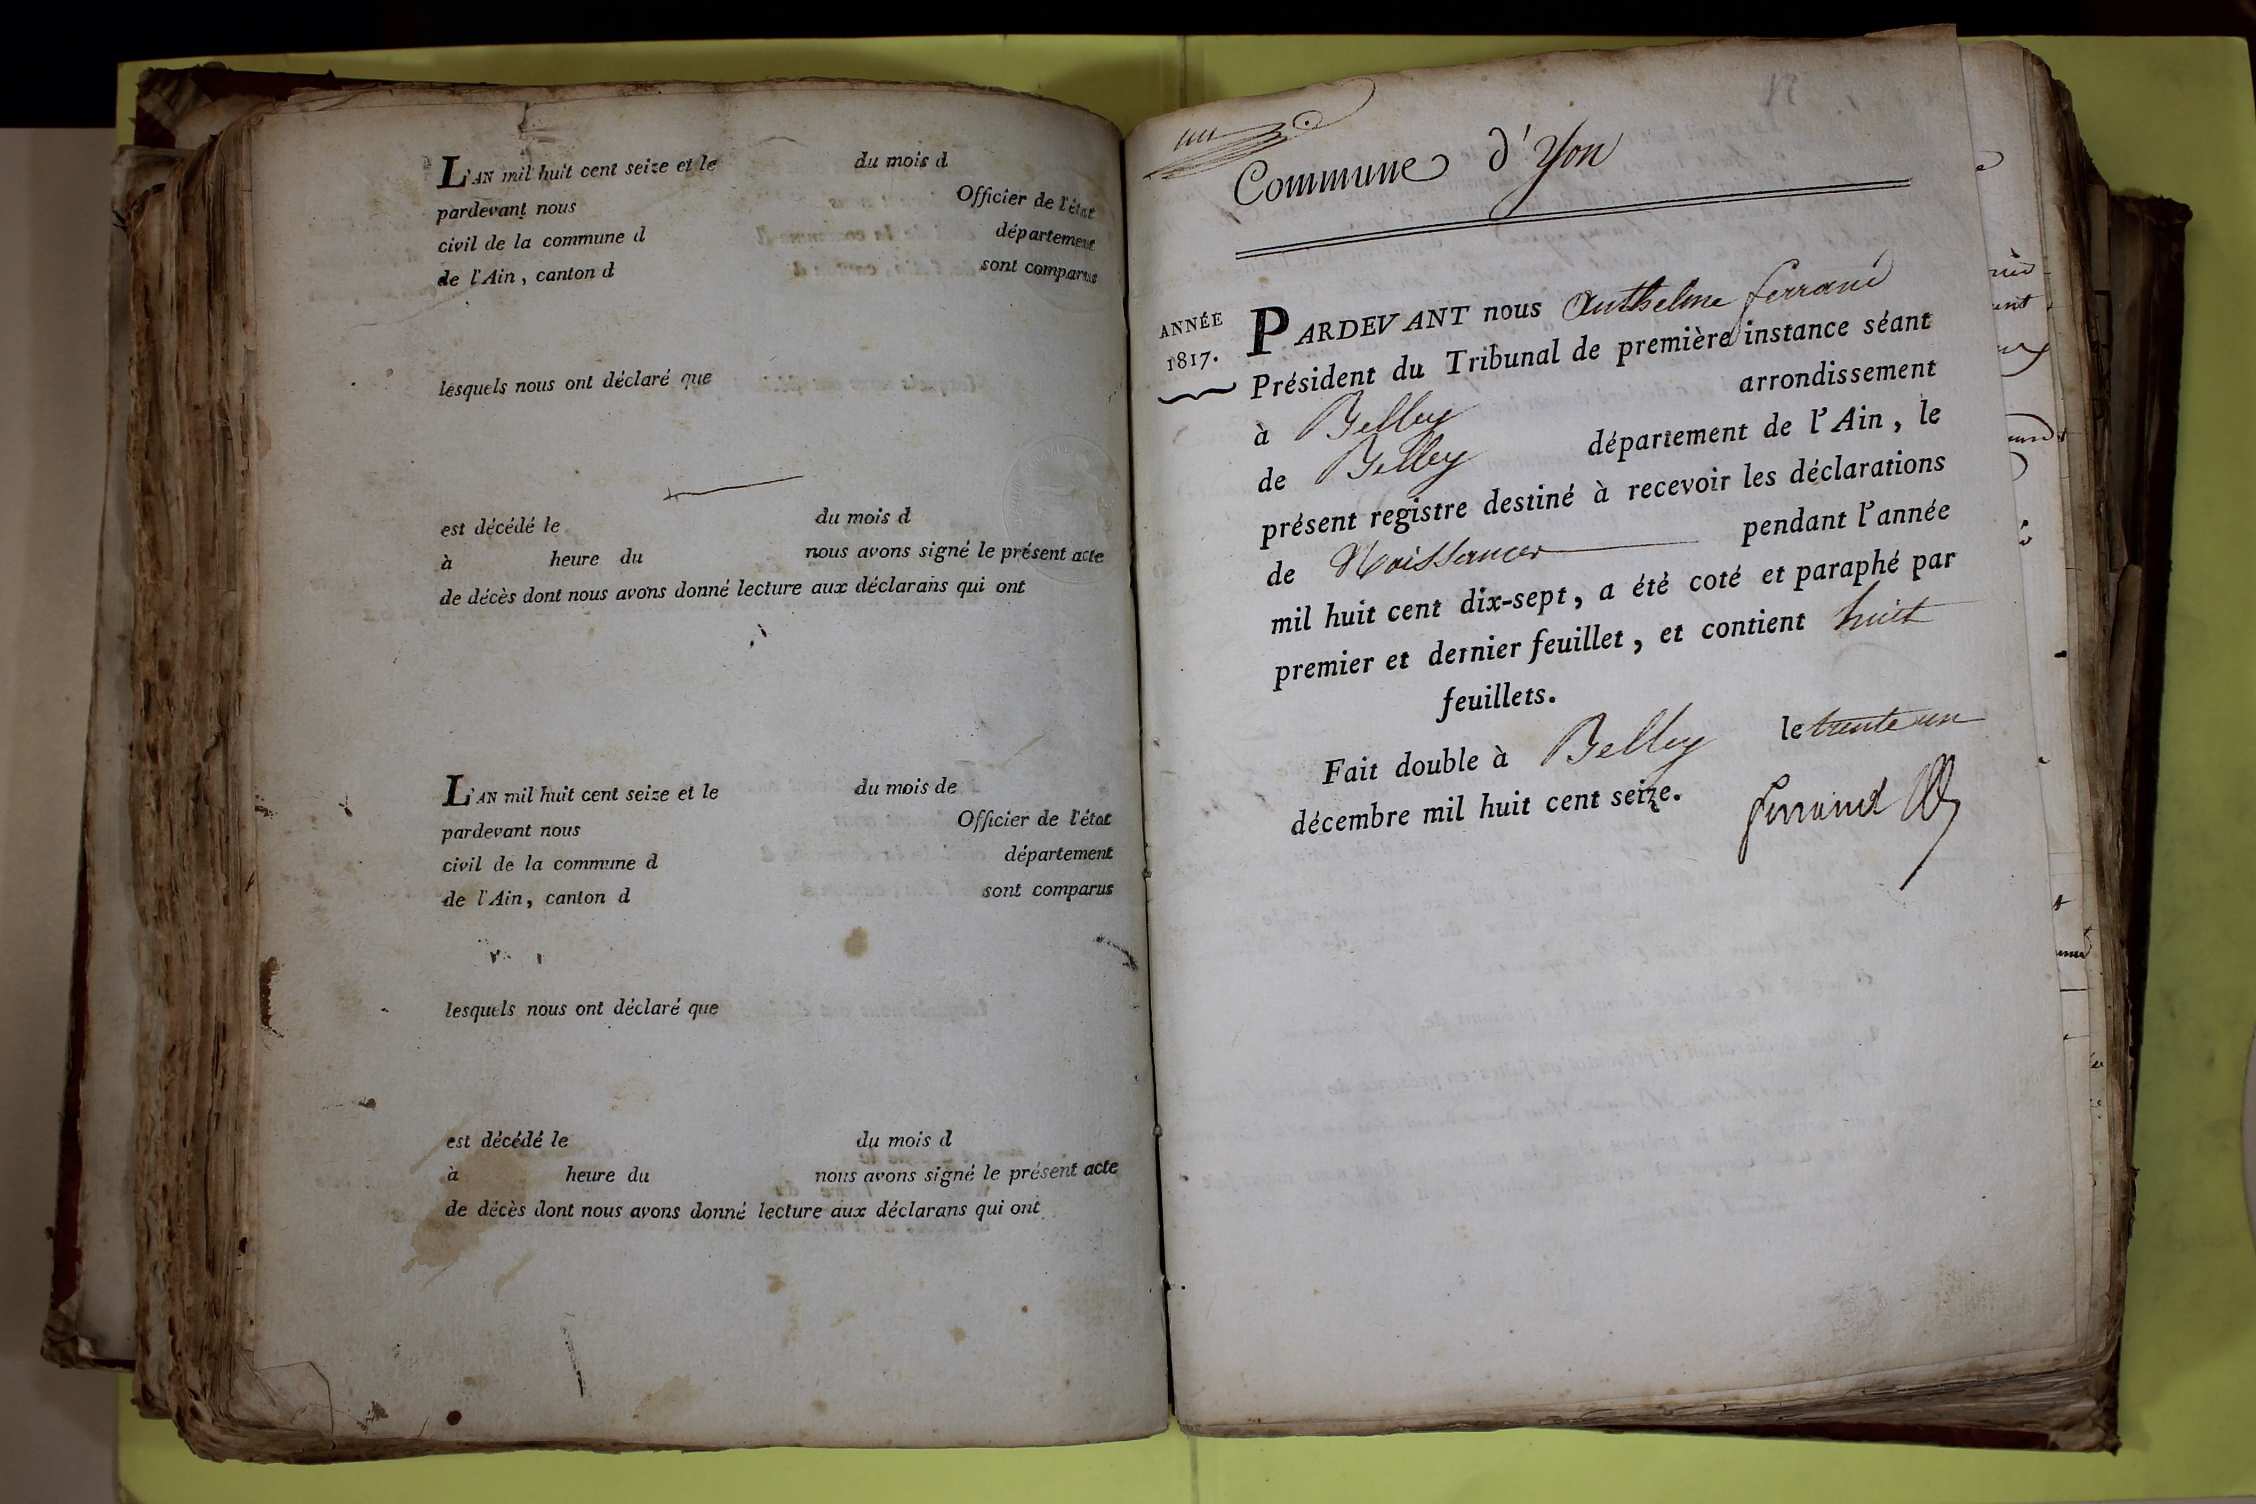 L'AN mil huit cent seize et le du mois d
pardevant nous Officier de l'état
civil de la commune d département
de l'Ain, canton d sont comparus
lesquels nous ont déclaré que
est décédé le du mois d
à heure du nous avons signé le présent acte
de décès dont nous avons donné lecture aux déclarans qui ont
L'AN mil huit cent seize et le du mois de
pardevant nous Officier de l'état
civil de la commune d département
de l'Ain, canton d sont comparus
lesquels nous ont déclaré que
est décédé le du mois d
à heure du nous avons signé le présent acte
de décès dont nous avons donné lecture aux déclarans qui ont
Commune d'Yon
ANNÉE
1817.
PARDEVANT nous Anthelme ferrand
Président du Tribunal de première instance séant
à Belley arrondissement
de Belley département de l'Ain, le
présent registre destiné à recevoir les déclarations
de Naissances pendant l'année
mil huit cent dix-sept, a été coté et paraphé par
premier et dernier feuillet, et contient huit
feuillets.
Fait double à Belley le trente un
décembre mil huit cent seize.
ferrand